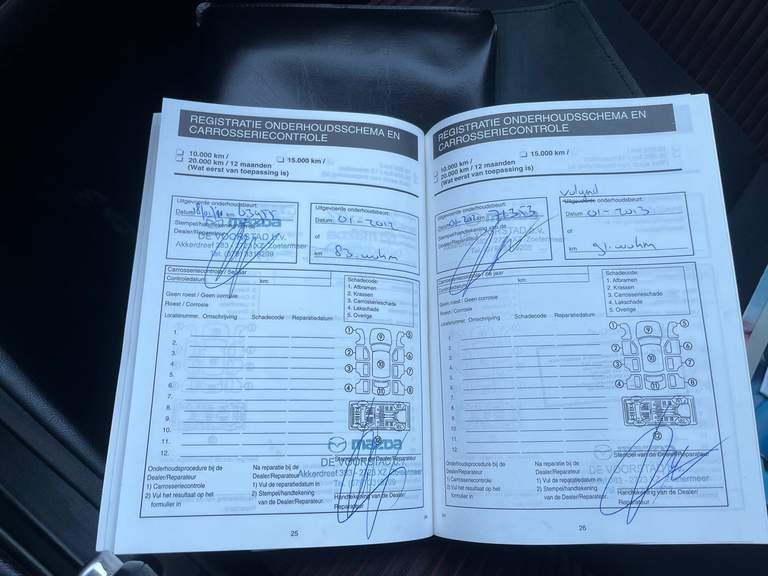 REGISTRATIE ONDERHOUDSSCHEMA EN
CARROSSERIECONTROLE
10.000 km /
15.000 km /
20.000 km / 12 maanden
(Wat eerst van toepassing is)
Uitgevoerde onderhoudsbeurt:
Datum
km
Stempel/handtekening van de
Dealer/Reparateur:
mazda
DE VOORSTAD B.V.
Akkerdreef 383 - 2723 XZ Zoetermeer
Uitgevoerde onderhoudsbeurt:
Datum 01-2012
of
km
Carrosseriecontrole / 5e jaar
Controledatum
km:
Geen roest / Geen corrosie
Roest / Corrosie
Schadecode:
1. Afbramen
2. Krassen
3. Carrosserieschade
4. Lakschade
5. Overige
Locatienummer Omschrijving Schadecode Reparatiedatum
1.
2.
3.
4.
5.
6.
7.
8.
9.
10.
11.
12.
mazda
DE VOORSTAD B.V.
Akkerdreef 383 - 2723 XZ Zoetermeer
Onderhoudsprocedure bij de
Dealer/Reparateur
1) Carrosseriecontrole
2) Vul het resultaat op het
formulier in
Na reparatie bij de
Dealer/Reparateur:
1) Vul de reparatiedatum in
2) Stempel/handtekening
van de Dealer/Reparateur.
Stempel van de Dealer/Reparateur
Handtekening van de Dealer/
Reparateur:
25
REGISTRATIE ONDERHOUDSSCHEMA EN
CARROSSERIECONTROLE
10.000 km /
15.000 km /
20.000 km / 12 maanden
(Wat eerst van toepassing is)
Uitgevoerde onderhoudsbeurt:
Datum
km
Stempel/handtekening van de
Dealer/Reparateur:
Uitgevoerde onderhoudsbeurt:
Datum 01-2013
of
km
Carrosseriecontrole / 6e jaar
Controledatum
km:
Geen roest / Geen corrosie
Roest / Corrosie
Schadecode:
1. Afbramen
2. Krassen
3. Carrosserieschade
4. Lakschade
5. Overige
Locatienummer Omschrijving Schadecode Reparatiedatum
1.
2.
3.
4.
5.
6.
7.
8.
9.
10.
11.
12.
Onderhoudsprocedure bij de
Dealer/Reparateur
1) Carrosseriecontrole
2) Vul het resultaat op het
formulier in
Na reparatie bij de
Dealer/Reparateur:
1) Vul de reparatiedatum in
2) Stempel/handtekening
van de Dealer/Reparateur.
Stempel van de Dealer/Reparateur
Handtekening van de Dealer/
Reparateur:
26